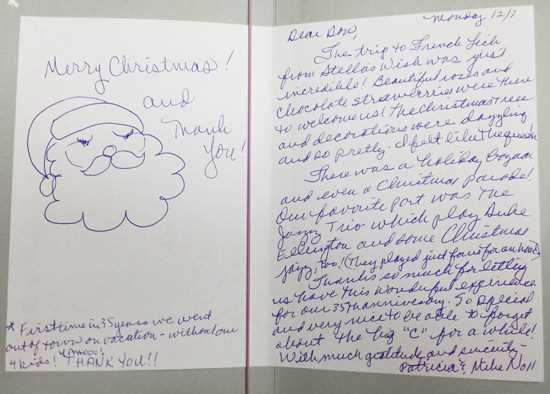 Merry Christmas!
and
Thank
You!
* First time in 35 years we went
out of town on vacation - without our
4 kids! THANK YOU!!
Monday 12/7
Dear Don,
The trip to French Lick
from Stella's Wish was just
incredible! Beautiful roses and
chocolate strawberries were there
to welcome us! The Christmas trees
and decorations were dazzling
and so pretty. I felt like the queen!
There was a holiday bazaar
and even a Christmas Parade!
Our favorite part was the
Jazzy Trio which play Duke
Ellington and some Christmas
jazz, too! (They played just for us for an hour)
Thanks so much for letting
us have this wonderful experience
for our 35th anniversary. So special
and very nice to be able to forget
about the big "C" for a while!
With much gratitude and sincerity-
Patricia & Mike Noll